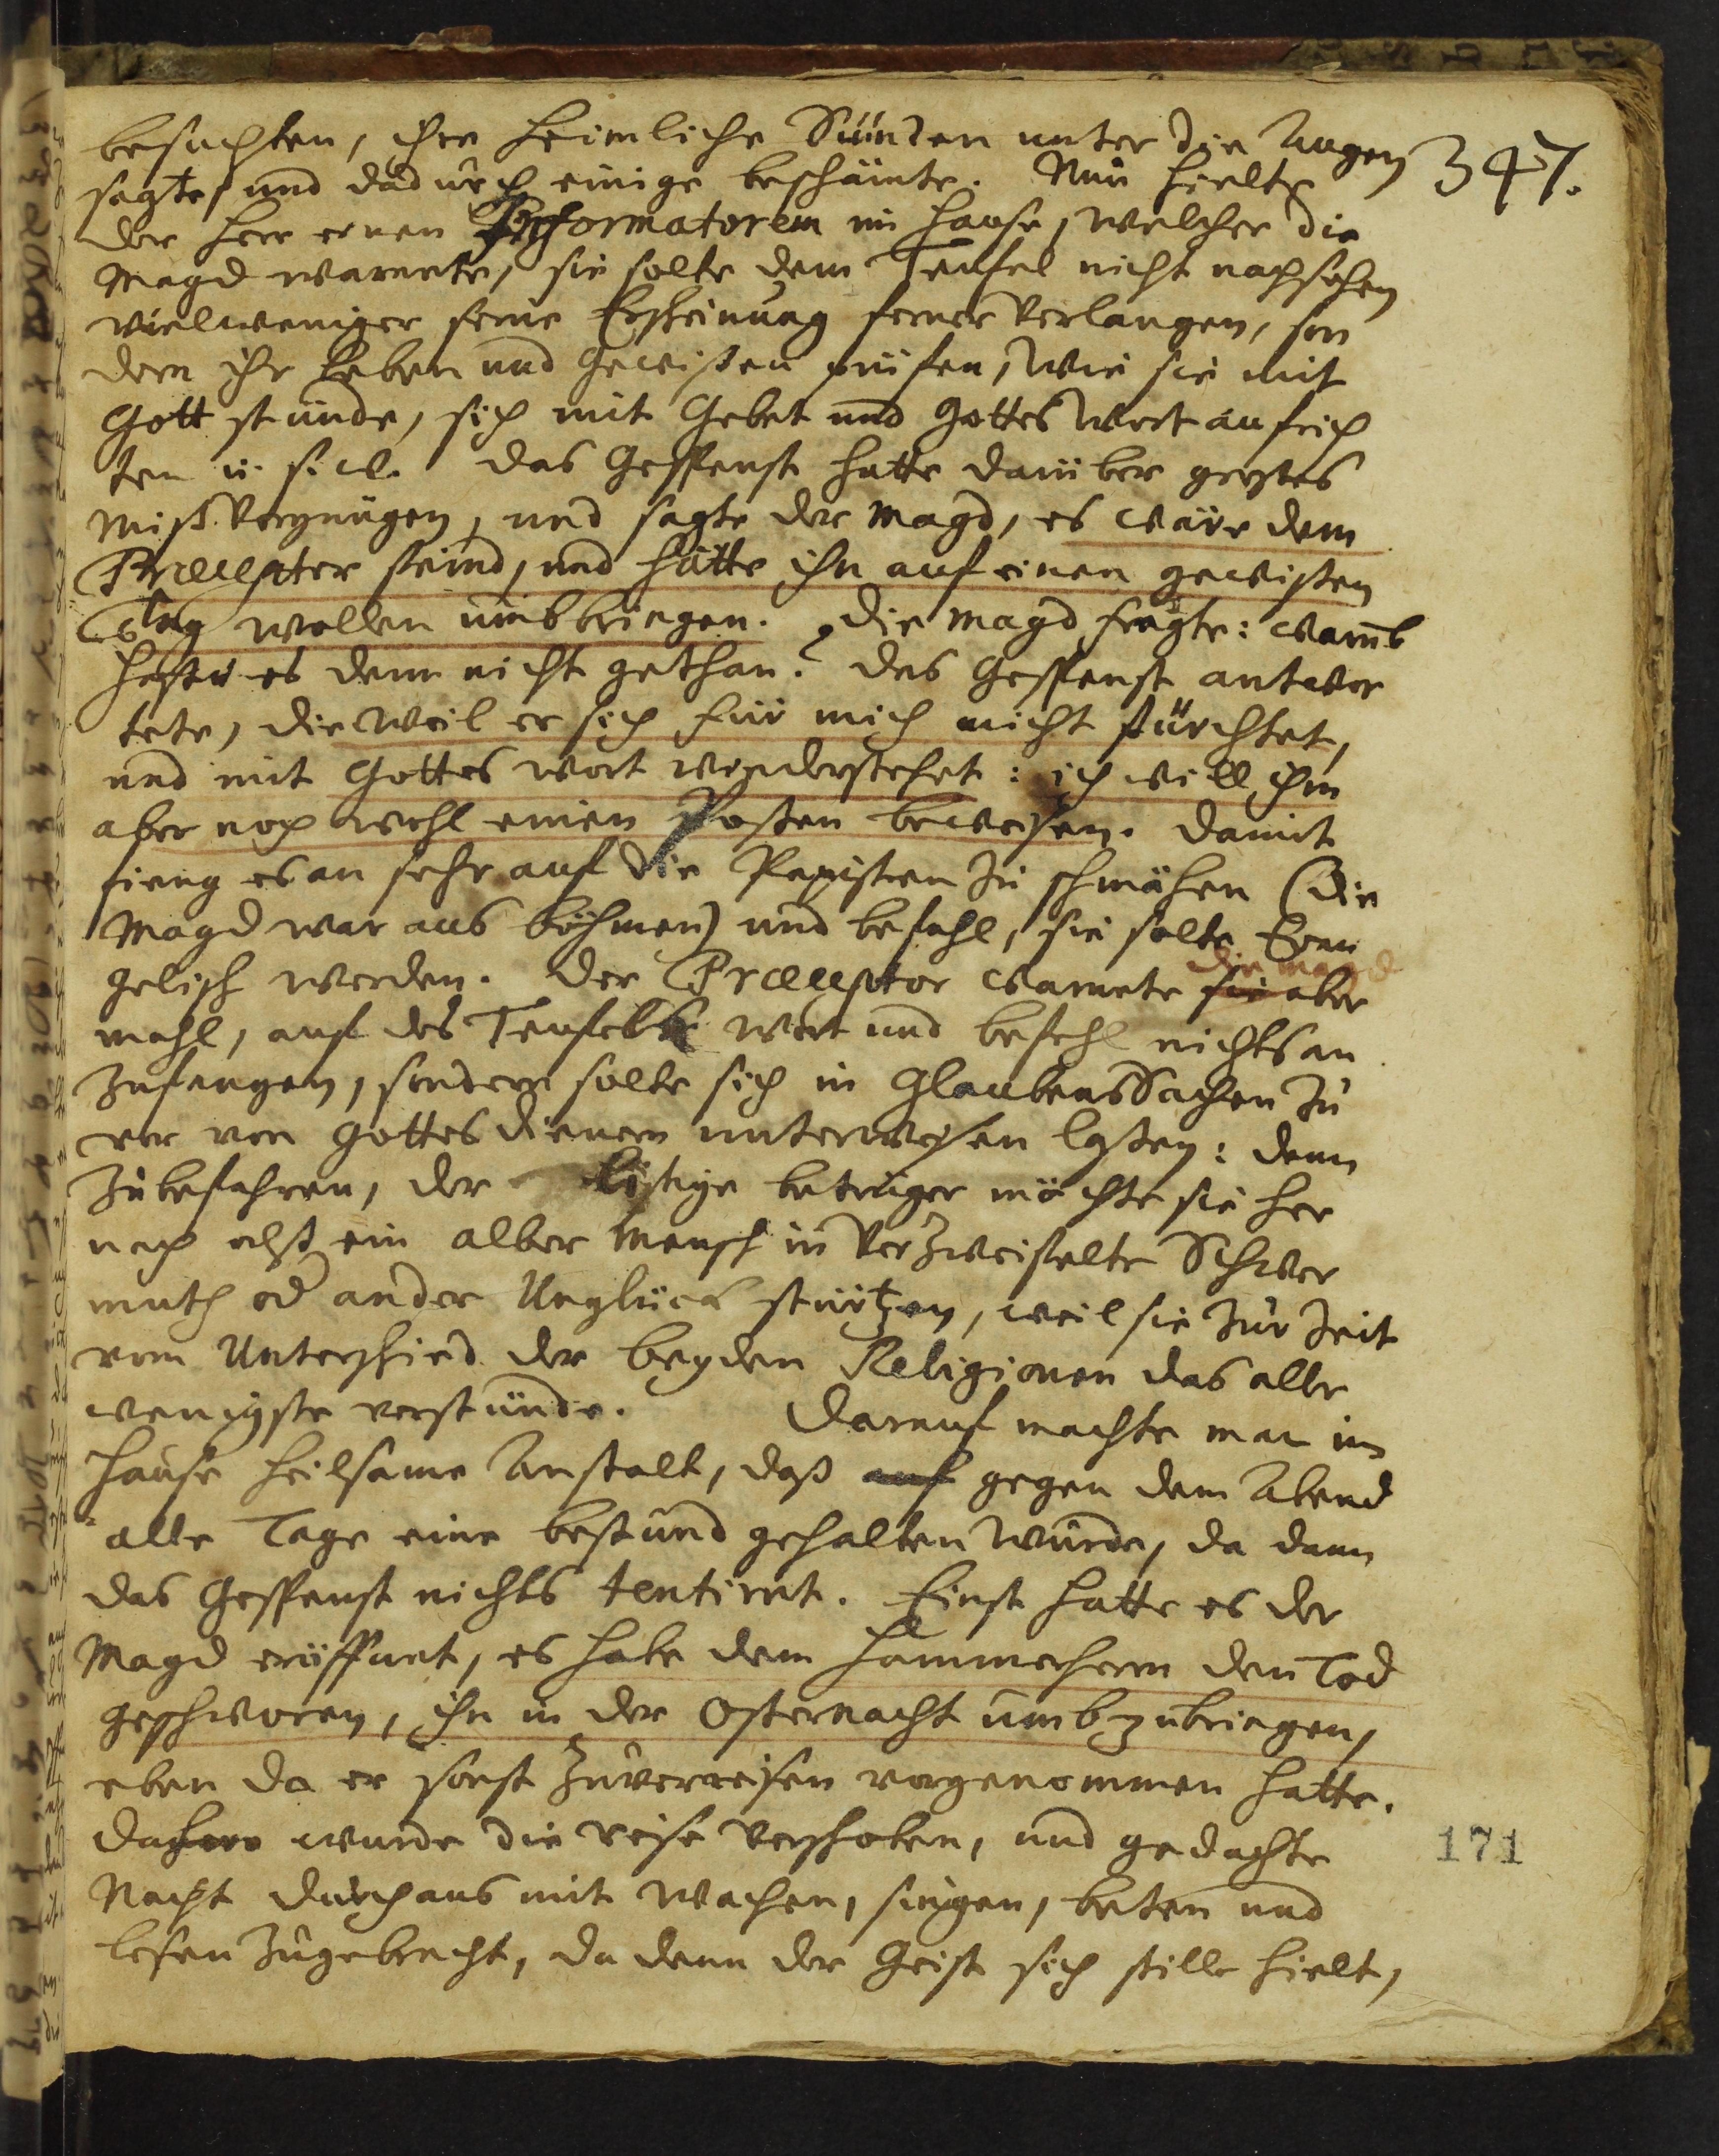 347.
besuchten, ihre heimliche Sünden unter die Augen
sagte, und dadurch einige beschämte. Nun hielte
der Herr einen Informatorem im Hause, welcher die
Magd warnete, sie solte dem Teufel nicht nachsehen
vielweniger seine Erscheinung ferner verlangen, son
dern ihr Leben und Gewißen prüfen, wie sie mit
Gott stünde, sich mit Gebet und Gottes Wort aufrich
ten u. s. w. Das Gespenst hatte darüber groszes
Miszvergnügen, und sagte der Magd, es wäre dem
Præceptor feind, und hätte ihn auf einen gewißen
Tag wollen umbbringen. Die Magd fragte: warumb
hastu es denn nicht gethan? Das Gespenst antwor
tete, dieweil er sich für mich nicht fürchtet,
und mit Gottes wort wiederstehet: ich will ihm
aber noch wohl einen Poßen beweisen. Damit
fieng es an sehr auf die Papisten zu schmähen (die
Magd war aus Böhmen) und befahl, sie solte Evan
gelisch werden. Der Præceptor warnete sie die Magd aber
mahl, auf des Teufels Wort und befehl nichts an
zufangen, sondern solte sich in Glaubens Sachen zu
vor von Gottes dienern unterweisen laßen: denn
zubefahren, der listige betrieger möchte sie her
nach alß ein alber Mensch in Verzweifelte Schwer
muth od ander Unglück stürtzen, weil sie zur Zeit
vom Unterschied der beyden Religionen das aller
wenigste verstünde. Darauf machte man im
Hause heilsame Anstalt, daß auf gegen dem Abend
alle Tage eine betstund gehalten wurde, da dann
das Gespenst nichts tentiret. Einst hatte es der
Magd eröffnet, es habe dem Hammerherrn den Tod
geschworen, ihn in der Osternacht umbzubringen,
eben da er sonst zuverreisen vorgenommen hatte.
Dahero wurde die reise verschoben, und gedachte
171
Nacht durchaus mit wachen, singen, beten und
lesen zugebracht, da denn der Geist sich stille hielt,